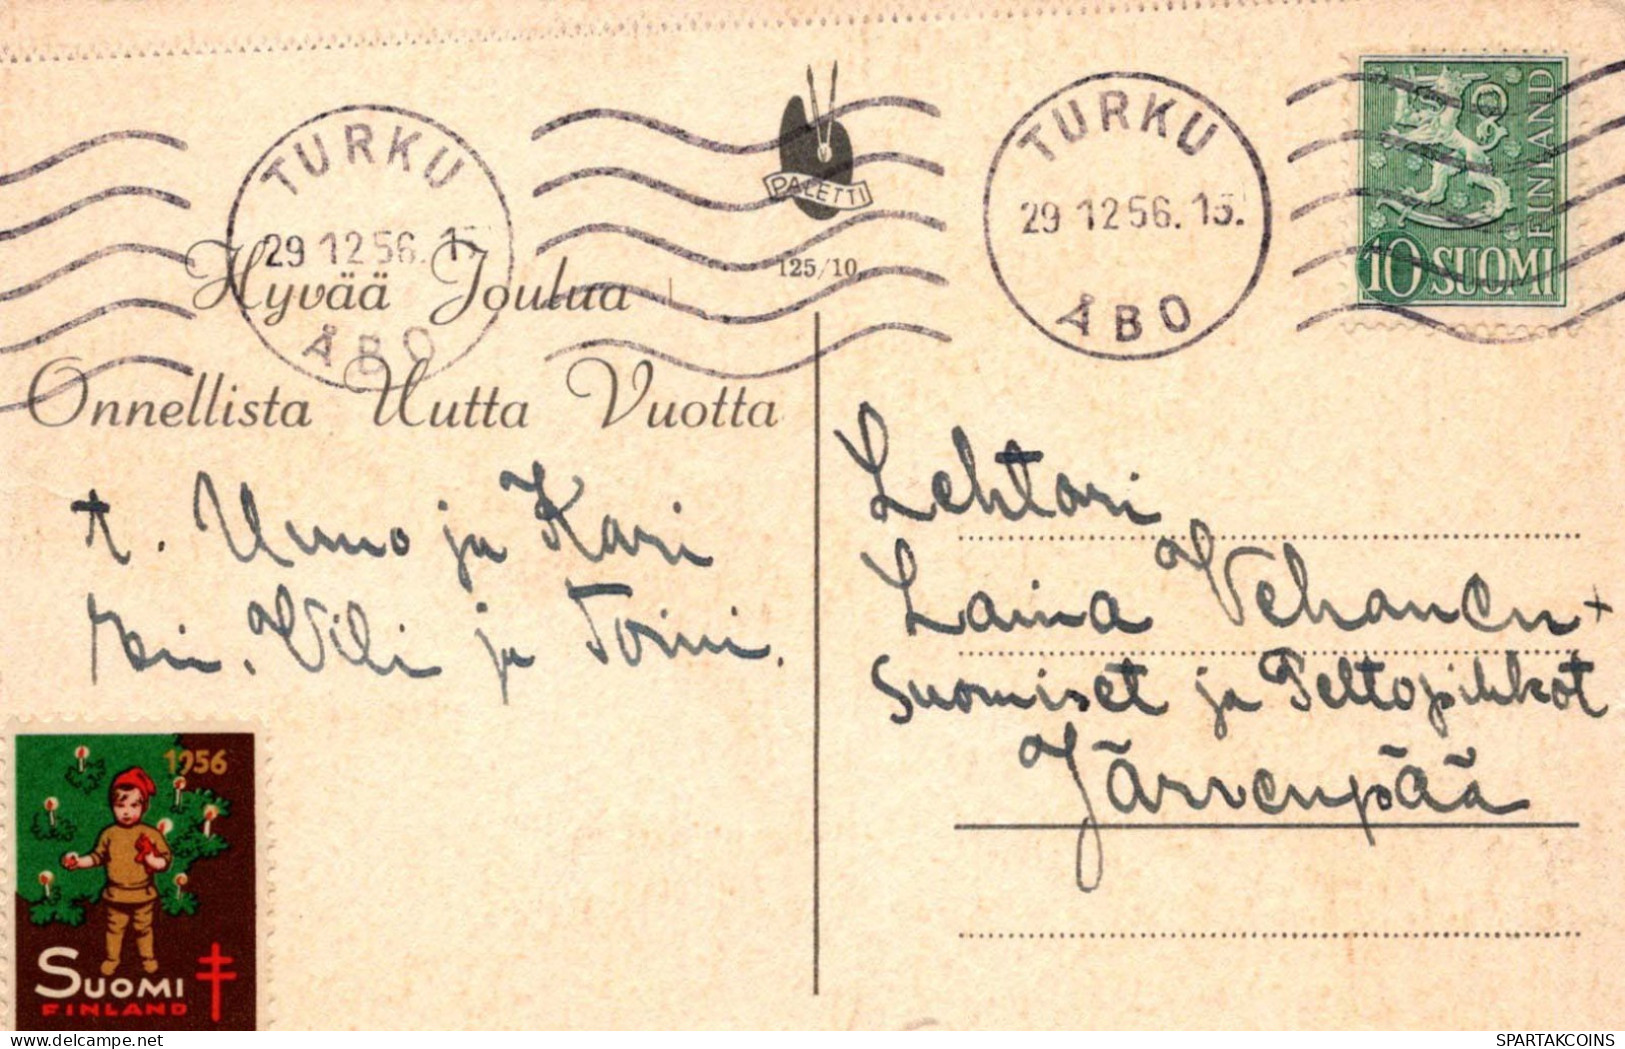 TURKU
29 12 56. 15.
ÅBO
PALETTI
125/10.
TURKU
29 12 56. 15.
ÅBO
FINLAND
10 SUOMI
Hyvää Joulua
Onnellista Uutta Vuotta
t. Unno ja Kari
Vili ja Toini.
Lehtori
Laina Vehanen +
Suomiset ja Peltopihkot
Järvenpää
1956
SUOMI
FINLAND
WWW.SPARTAKCOINS.COM